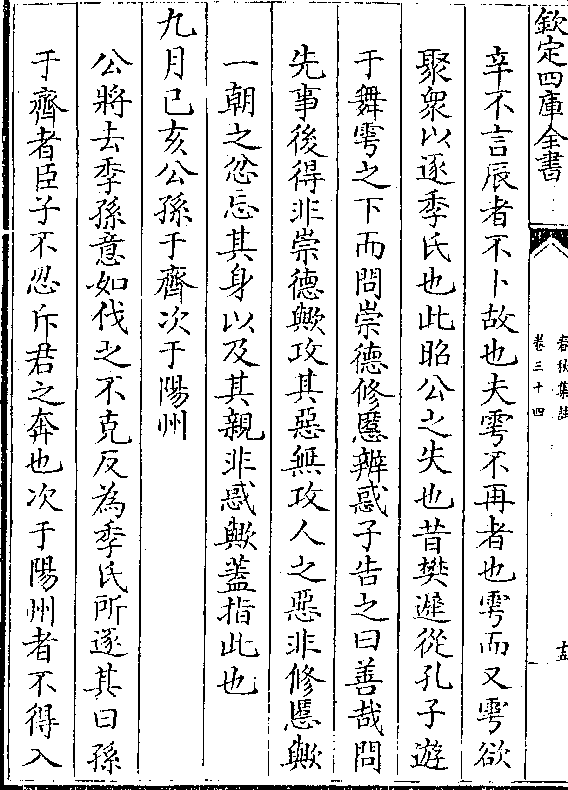 欽定四庫全書
春秋集註
卷三十四
十五
辛不言辰者不卜故也夫雩不再者也雩而又雩欲
聚衆以逐季氏也此昭公之失也昔樊遲從孔子遊
于舞雩之下而問崇德修慝辨惑子告之曰善哉問
先事後得非崇德歟攻其惡無攻人之惡非修慝歟
一朝之忿忘其身以及其親非惑歟蓋指此也
九月己亥公孫于齊次于陽州
公將去季孫意如伐之不克反為季氏所逐其曰孫
于齊者臣子不忍斥君之奔也次于陽州者不得入